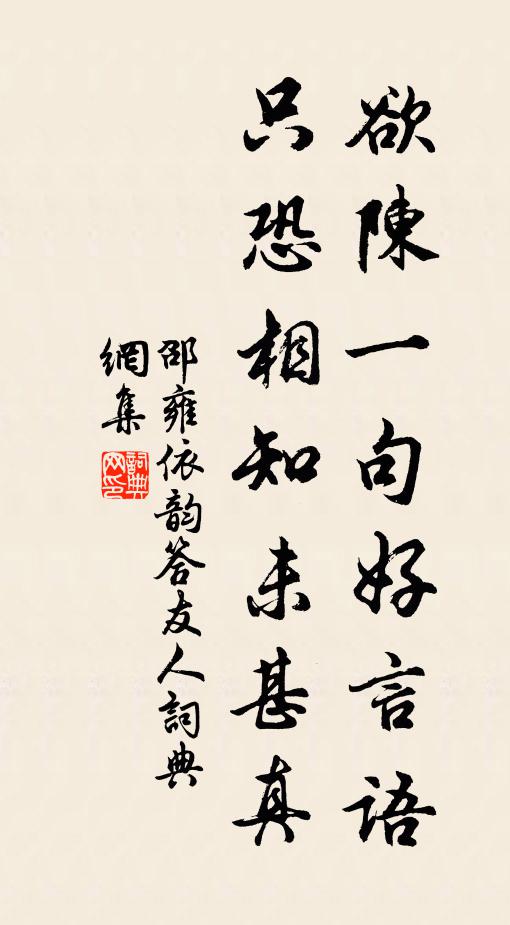 欲陳一句好言語
只恐相知未甚真
邵雍依韵答友人詞典
網集
詞典网印